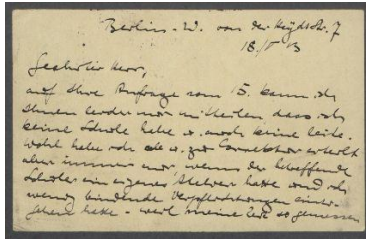 Berlin. W. von der Heydtstr. 7
18/V 13
Geehrter Herr,
auf Ihre Anfrage vom 15. kann ich
Ihnen leider nur mitteilen, dass ich
keine Schule habe u. auch keine leite.
Wohl habe ich ab u. zu Correktur erteilt
aber immer nur, wenn der betreffende
Schüler ein eigenes Atelier hatte und ich
wenig bindende Verpflichtungen
hatte - weil meine Zeit so gemessen